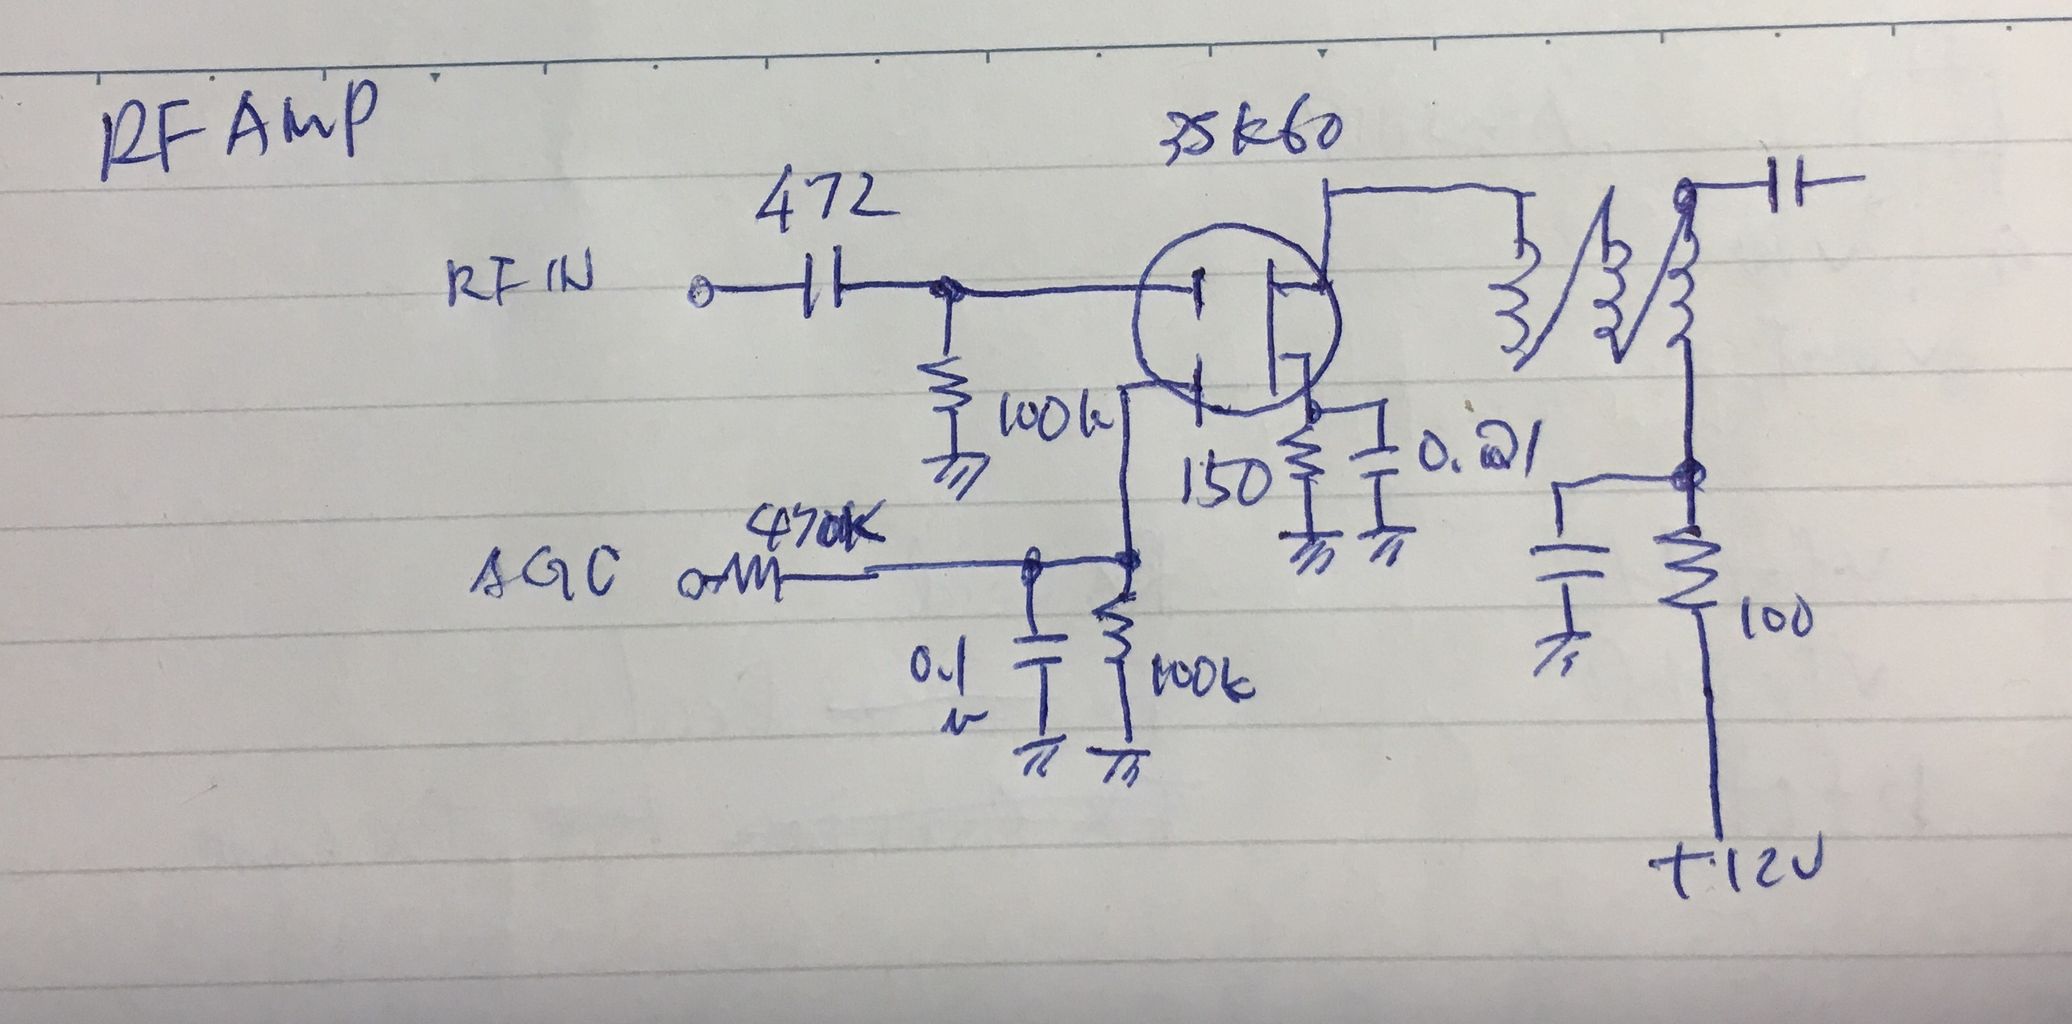 RF AMP
3SK60
472
RF IN
100k
150
0.01
470K
AGC
0.1
u
100k
100
+12V